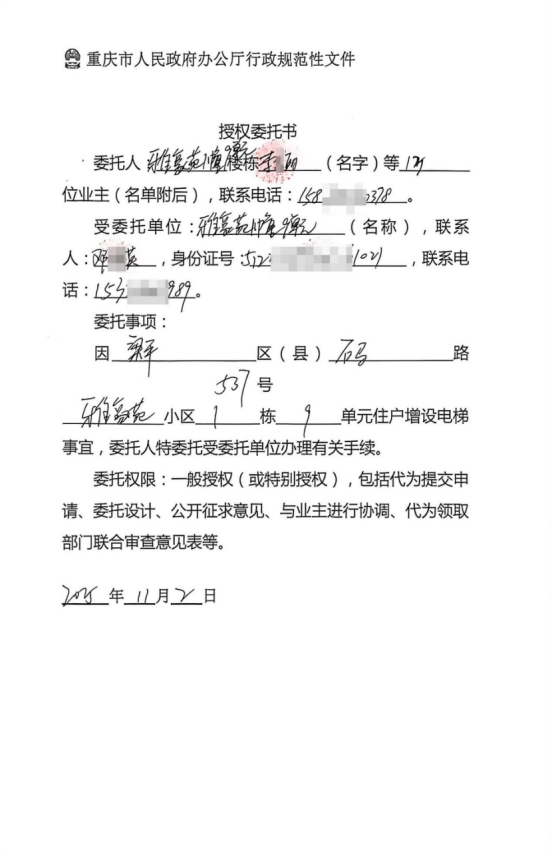 重庆市人民政府办公厅行政规范性文件
授权委托书
委托人 雅馨苑1幢9单元楼栋李 （名字）等12
位业主（名单附后），联系电话：158 378 。
受委托单位：雅馨苑1幢9单元 （名称），联系
人：邓 英 ，身份证号：512 1021 ，联系电
话：153 989 。
委托事项：
因 梁平 区（县） 石马 路
537号
雅馨苑 小区 1 栋 9 单元住户增设电梯
事宜，委托人特委托受委托单位办理有关手续。
委托权限：一般授权（或特别授权），包括代为提交申
请、委托设计、公开征求意见、与业主进行协调、代为领取
部门联合审查意见表等。
2025 年 11 月 2 日